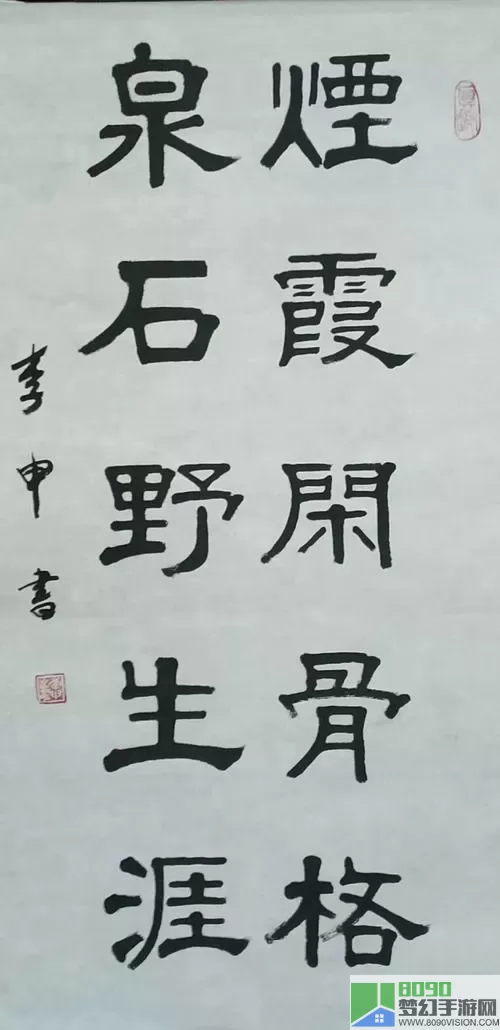 煙霞閑骨格
泉石野生涯
李申書
8090
梦幻手游网
WWW.8090VISION.COM